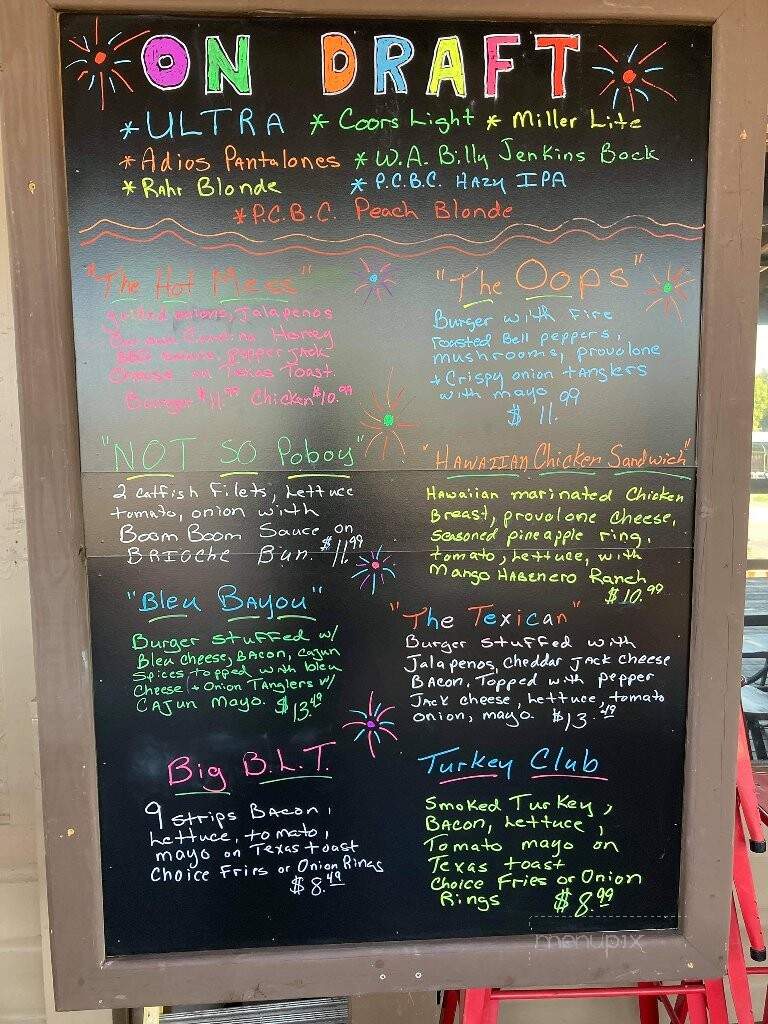 ON DRAFT
* ULTRA * Coors Light * Miller Lite
* Adios Pantalones * W.A. Billy Jenkins Bock
* Rahr Blonde * P.C.B.C. Hazy IPA
* P.C.B.C. Peach Blonde
"The Hot Mess"
grilled onions, Jalapenos
Carolina Honey
BBQ sauce, pepper jack
Cheese on Texas Toast.
Burger $11.99 Chicken $10.99
"The Oops"
Burger with Fire
roasted Bell peppers,
mushrooms, provolone
+ Crispy onion tanglers
with mayo
$ 11.99
"NOT SO Poboy"
2 catfish Filets, Lettuce
tomato, onion with
Boom Boom Sauce on
BRIOCHE Bun. $11.99
"Hawaiian Chicken Sandwich"
Hawaiian marinated Chicken
Breast, provolone cheese,
seasoned pineapple ring,
tomato, Lettuce, with
Mango Habenero Ranch
$10.99
"Bleu Bayou"
Burger stuffed w/
Bleu cheese, Bacon, Cajun
Spices topped with bleu
Cheese + Onion Tanglers w/
Cajun Mayo. $13.49
"The Texican"
Burger stuffed with
Jalapenos, Cheddar Jack Cheese
Bacon, Topped with pepper
Jack cheese, Lettuce, tomato
onion, mayo. $13.49
Big B.L.T.
9 strips Bacon,
Lettuce, tomato,
mayo on Texas toast
Choice Fries or Onion Rings
$8.49
Turkey Club
Smoked Turkey,
Bacon, Lettuce,
Tomato mayo on
Texas toast
Choice Fries or Onion
Rings $8.99
menupix